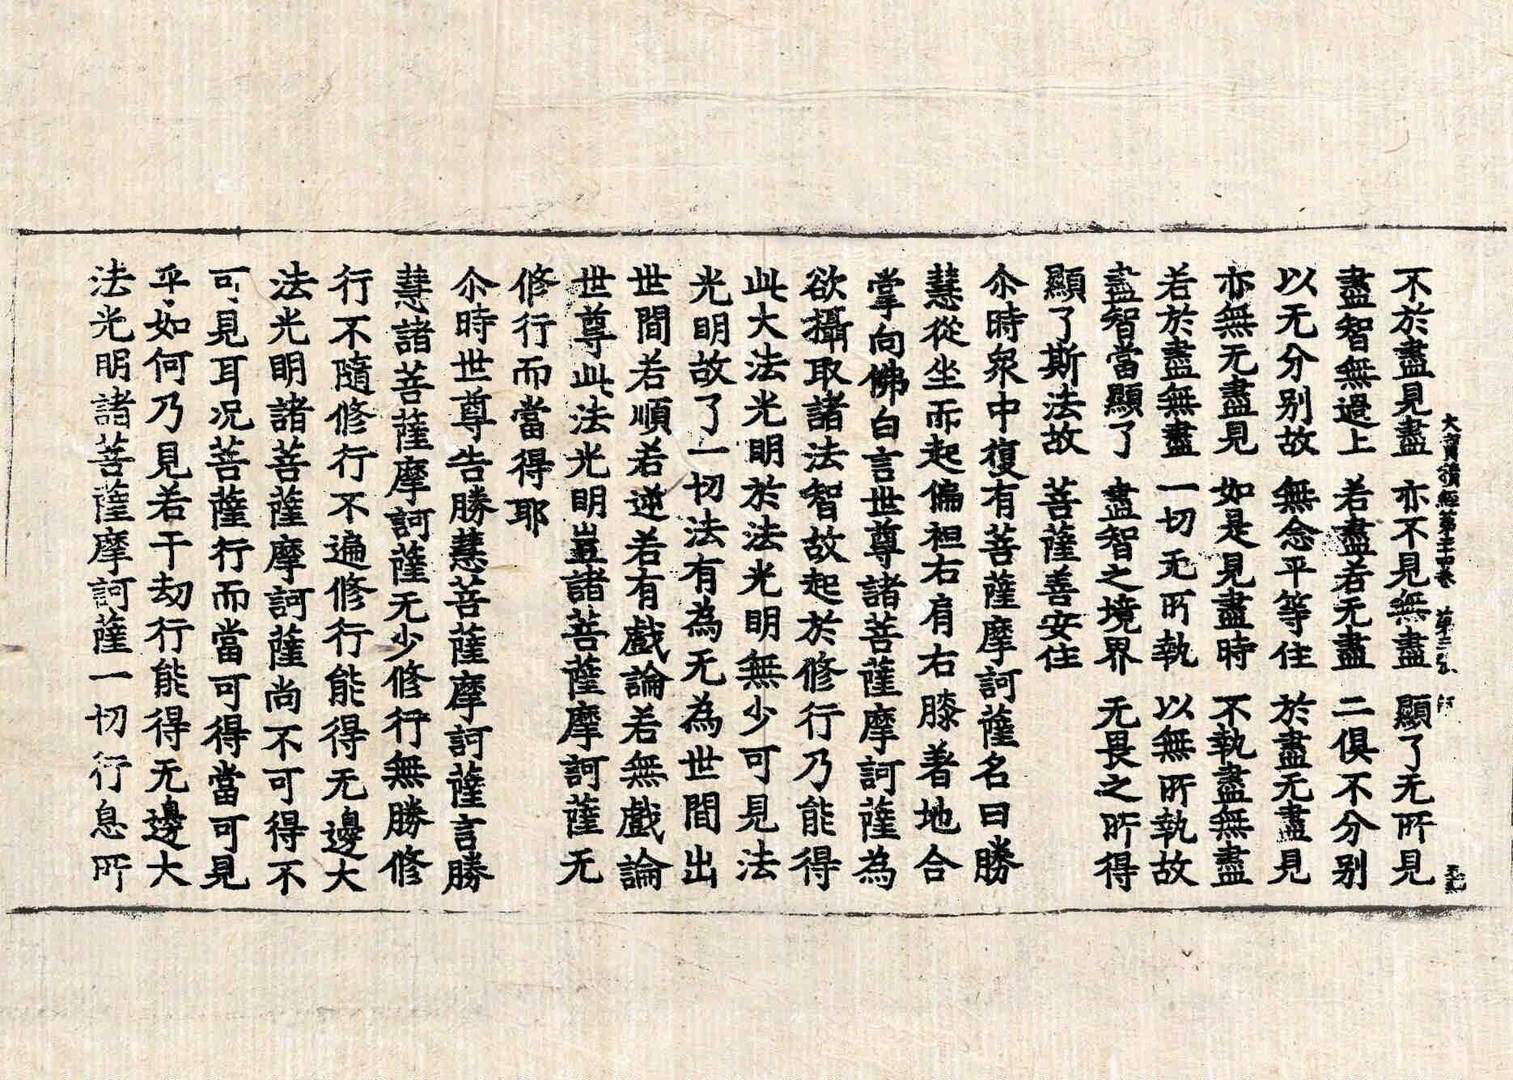 大寶積經第二十四卷 第二張
不於盡見盡 亦不見無盡 顯了无所見
盡智無過上 若盡若无盡 二俱不分別
以无分別故 無念平等住 於盡无盡見
亦無无盡見 如是見盡時 不執盡無盡
若於盡無盡 一切无所執 以無所執故
盡智當顯了 盡智之境界 无畏之所得
顯了斯法故 菩薩善安住
尒時衆中復有菩薩摩訶薩名曰勝
慧從坐而起偏袒右肩右膝著地合
掌向佛白言世尊諸菩薩摩訶薩為
欲攝取諸法智故起於修行乃能得
此大法光明於法光明無少可見法
光明故了一切法有為无為世間出
世間若順若逆若有戲論若無戲論
世尊此法光明豈諸菩薩摩訶薩无
修行而當得耶
尒時世尊告勝慧菩薩摩訶薩言勝
慧諸菩薩摩訶薩无少修行無勝修
行不隨修行不遍修行能得无邊大
法光明諸菩薩摩訶薩尚不可得不
可見耳况菩薩行而當可得當可見
乎如何乃見若干劫行能得无邊大
法光明諸菩薩摩訶薩一切行息所